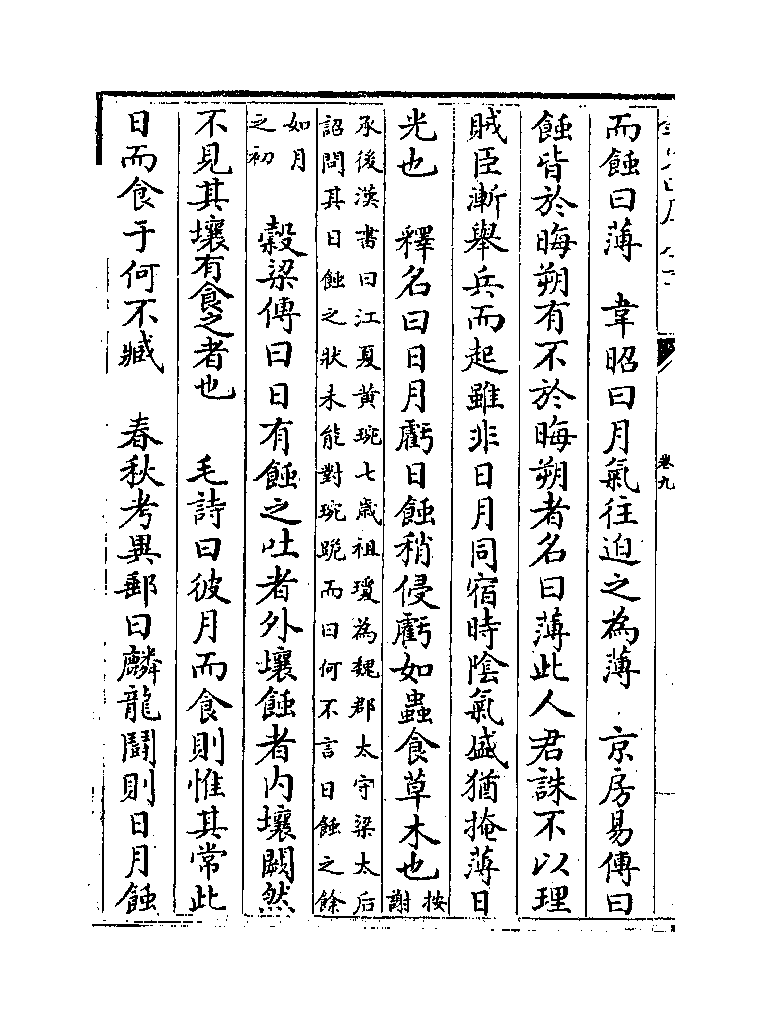 卷九
而蝕曰薄　韋昭曰月氣往迫之為薄　京房易傳曰
蝕皆於晦朔有不於晦朔者名曰薄此人君誅不以理
賊臣漸舉兵而起雖非日月同宿時陰氣盛猶掩薄日
光也　釋名曰日月虧日蝕稍侵虧如蟲食草木也按謝
承後漢書曰江夏黃琬七歲祖瓊為魏郡太守梁太后
詔問其日蝕之狀未能對琬跪而曰何不言日蝕之餘
如月之初　穀梁傳曰日有蝕之吐者外壤蝕者內壤闕然
不見其壤有食之者也　毛詩曰彼月而食則惟其常此
日而食于何不臧　春秋考異郵曰麟龍鬪則日月蝕